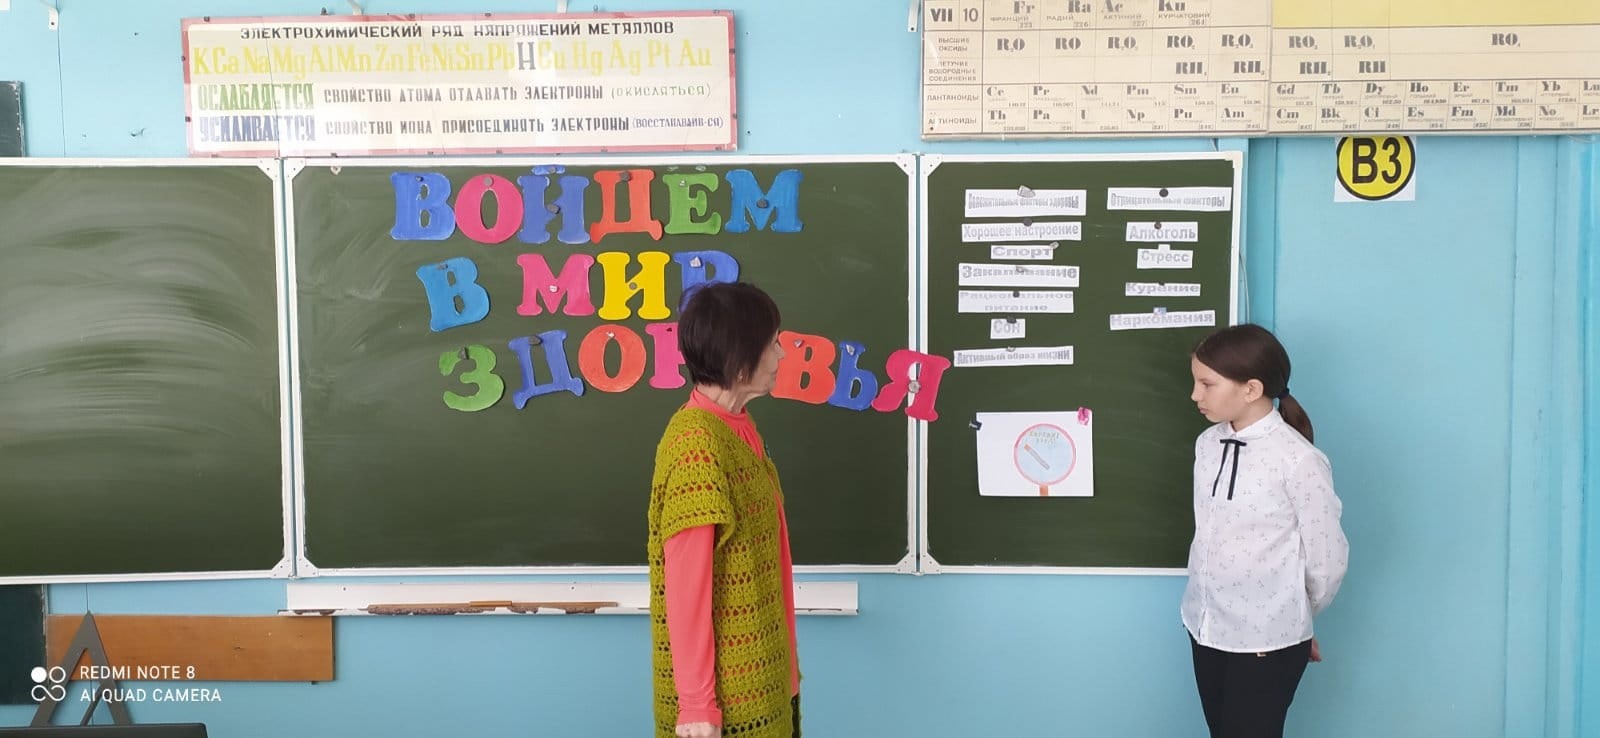 ЭЛЕКТРОХИМИЧЕСКИЙ РЯД НАПРЯЖЕНИЙ МЕТАЛЛОВ
K Ca Na Mg Al Mn Zn Fe Ni Sn Pb H Cu Hg Ag Pt Au
ОСЛАБЛЯЕТСЯ СВОЙСТВО АТОМА ОТДАВАТЬ ЭЛЕКТРОНЫ (ОКИСЛЯТЬСЯ)
УСИЛИВАЕТСЯ СВОЙСТВО ИОНА ПРИСОЕДИНЯТЬ ЭЛЕКТРОНЫ (ВОССТАНАВЛИВ-СЯ)
VII 10 Fr Ra Ac Ku
ФРАНЦИЙ РАДИЙ АКТИНИЙ КУРЧАТОВИЙ
223 226 227 264
ВЫСШИЕ ОКСИДЫ R₂O RO R₂O₃ RO₂ R₂O₅ RO₃ R₂O₇ RO₄
ЛЕТУЧИЕ ВОДОРОДНЫЕ СОЕДИНЕНИЯ RH₄ RH₃ RH₂ RH
ЛАНТАНОИДЫ Ce Pr Nd Pm Sm Eu Gd Tb Dy Ho Er Tm Yb Lu
АКТИНОИДЫ Th Pa U Np Pu Am Cm Bk Cf Es Fm Md No Lr
B3
ВОЙДЁМ
В МИР
ЗДОР ВЬЯ
Положительные факторы здоровья
Хорошее настроение
Спорт
Закаливание
Рациональное
питание
Сон
Активный образ жизни
Отрицательные факторы
Алкоголь
Стресс
Курение
Наркомания
REDMI NOTE 8
AI QUAD CAMERA